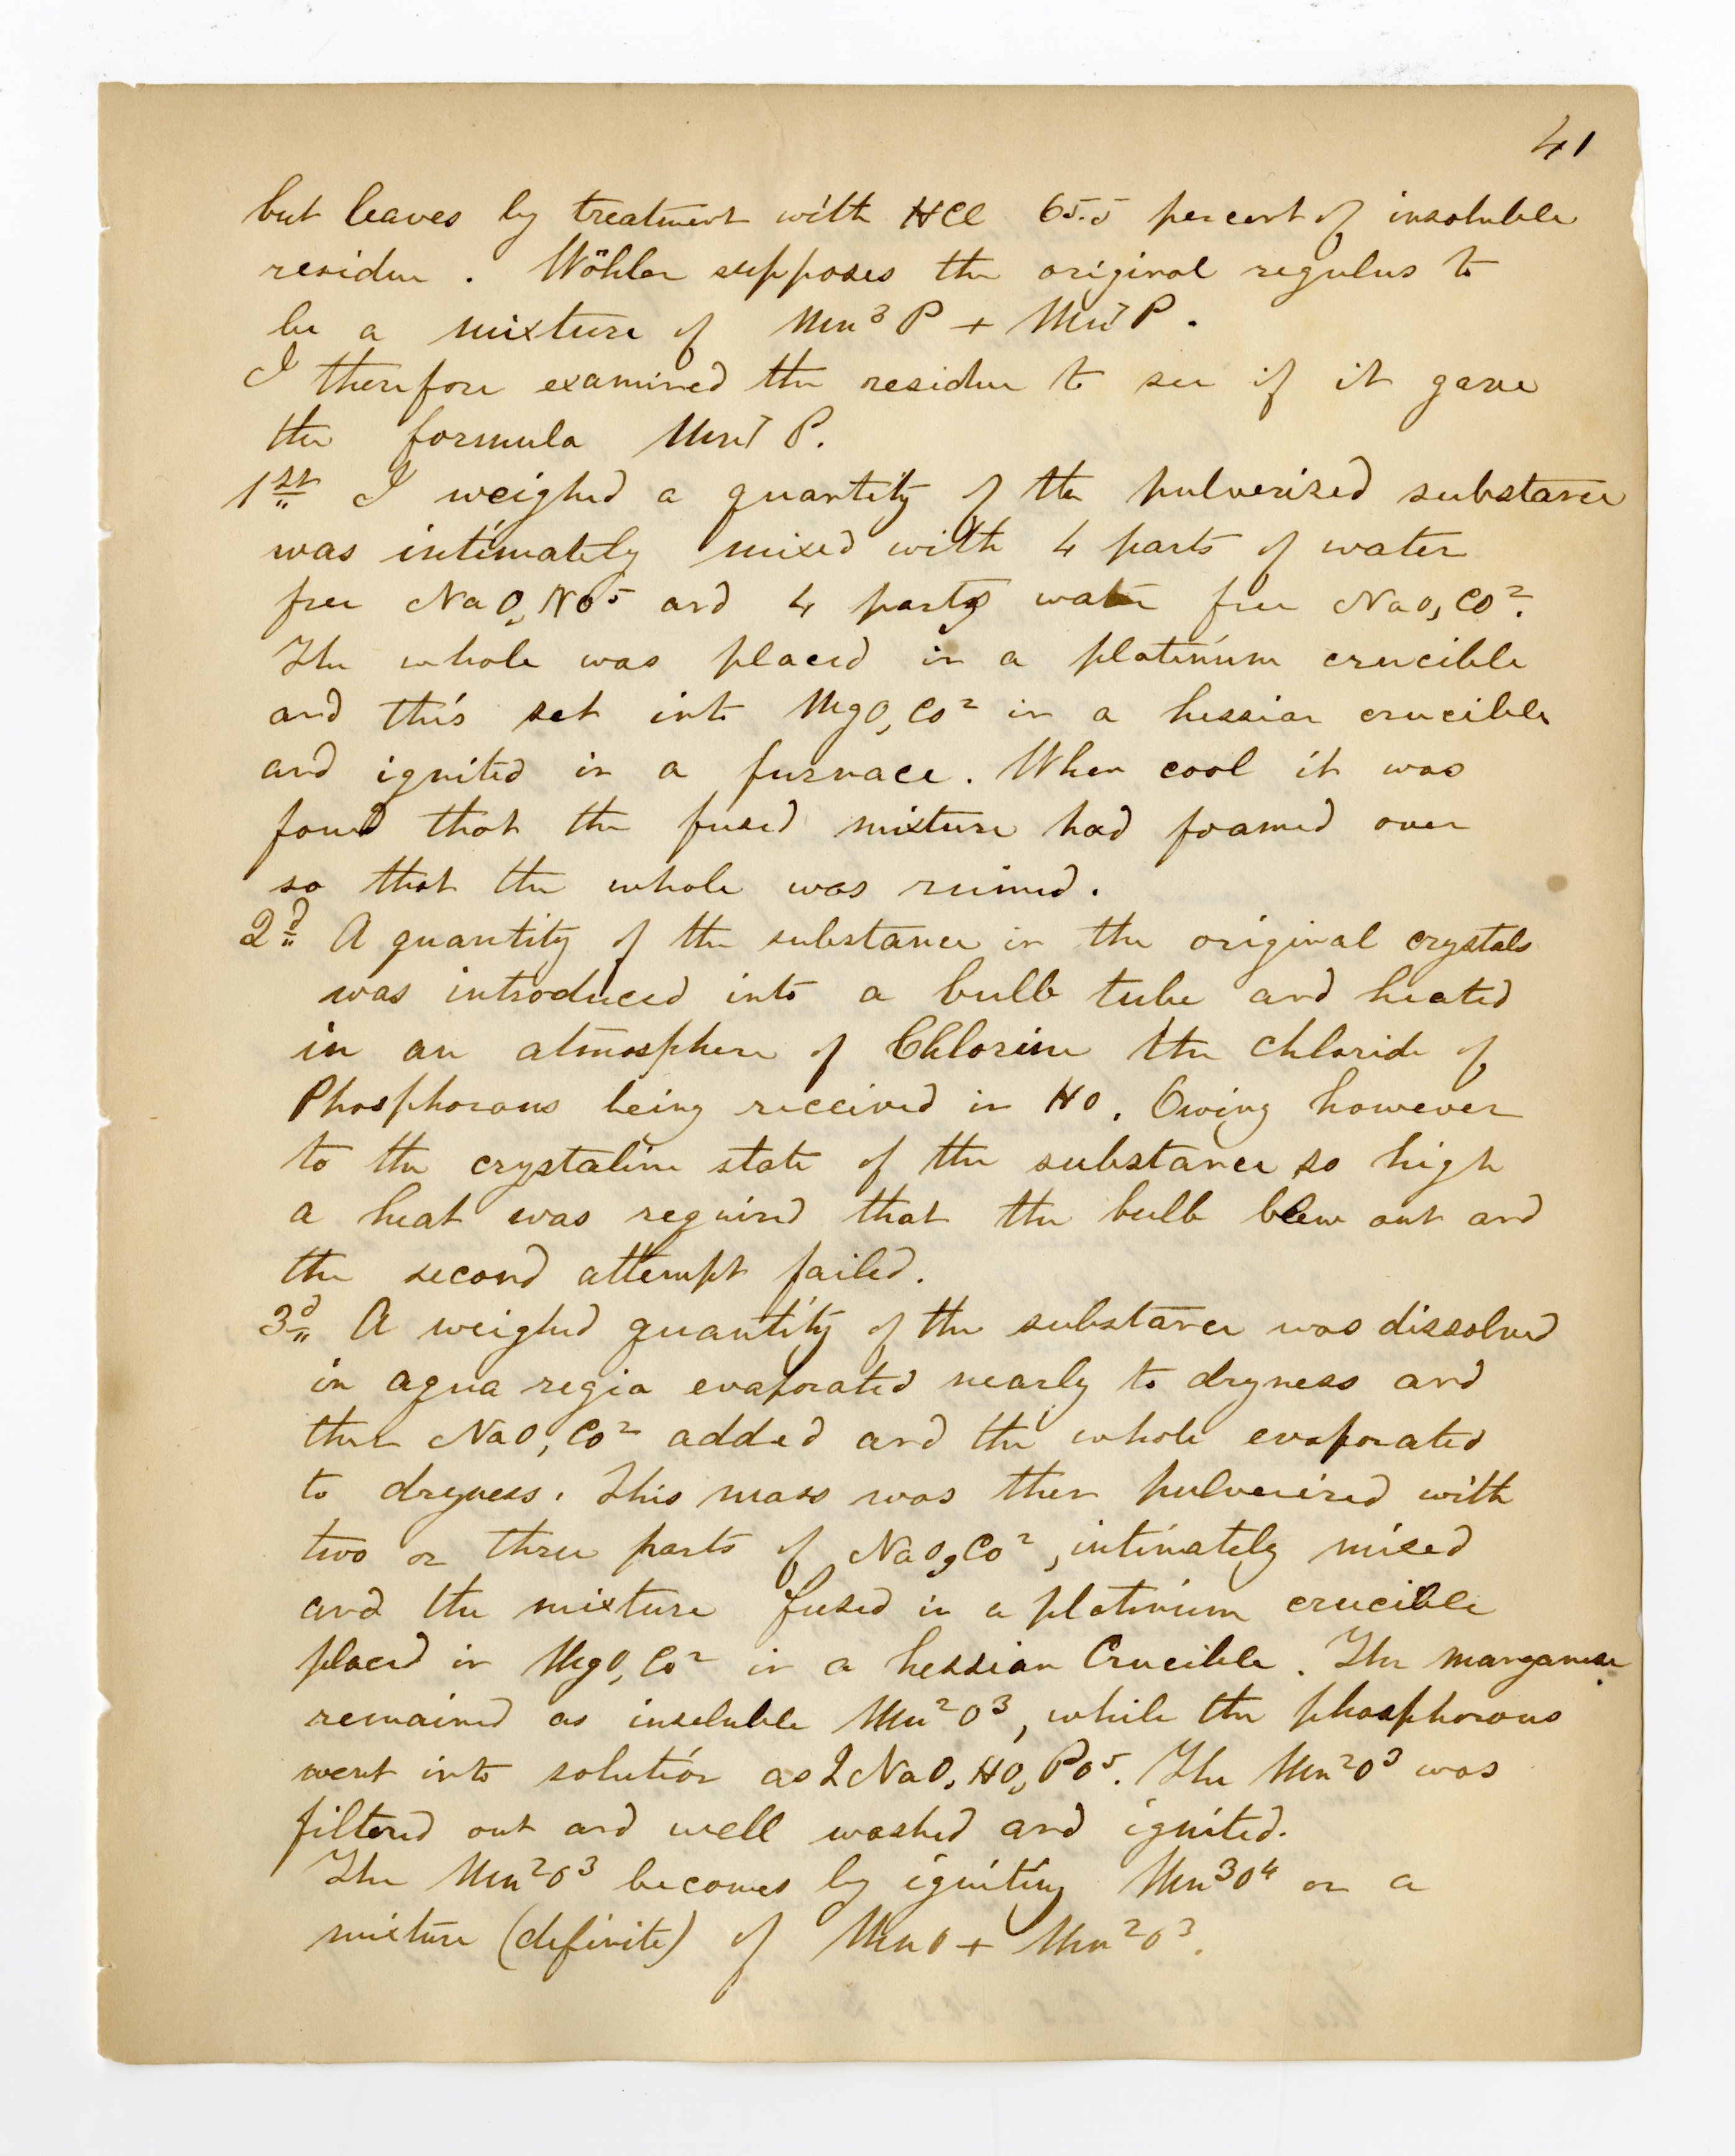 41
but leaves by treatment with HCl 65.5 per cent of insoluble
residue. Wöhler supposes the original regulus to
be a mixture of Mn³P + Mn⁷P.
I therefore examined the residue to see if it gave
the formula Mn⁷P.
1st I weighed a quantity of the pulverized substance
was intimately mixed with 4 parts of water
free NaO, NO⁵ and 4 parts water free NaO, CO².
The whole was placed in a platinum crucible
and this set into MgO, CO² in a hessian crucible
and ignited in a furnace. When cool it was
found that the fused mixture had foamed over
so that the whole was ruined.
2d A quantity of the substance in the original crystals
was introduced into a bulb tube and heated
in an atmosphere of Chlorine the chloride of
Phosphorous being received in HO. Owing however
to the crystaline state of the substance so high
a heat was required that the bulb blew out and
the second attempt failed.
3d A weighed quantity of the substance was dissolved
in aqua regia evaporated nearly to dryness and
then NaO, CO² added and the whole evaporated
to dryness. This mass was then pulverized with
two or three parts of NaO, CO², intimately mixed
and the mixture fused in a platinum crucible
placed in MgO, CO² in a hessian Crucible. The manganese
remained as insoluble Mn²O³, while the phosphorous
went into solution as 2NaO, HO, PO⁵. The Mn²O³ was
filtered out and well washed and ignited.
The Mn²O³ becomes by igniting Mn³O⁴ or a
mixture (definite) of MnO + Mn²O³.